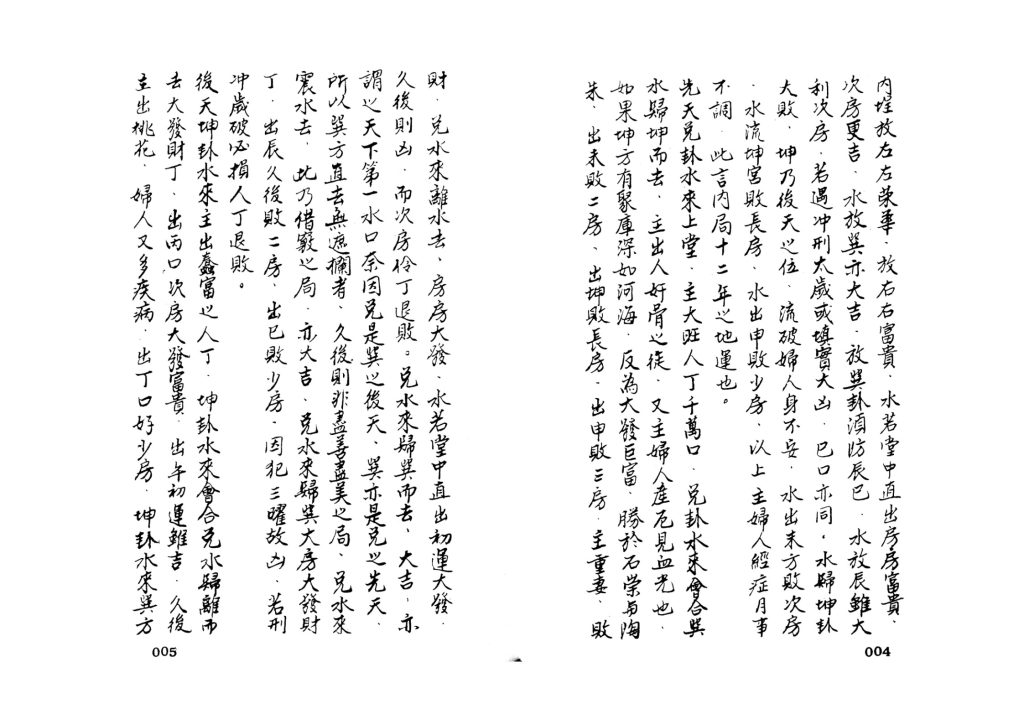 內埕放左左榮華．放右右富貴．水若堂中直出房房富貴．
次房更吉．水放巽亦大吉．放巽卦須防辰巳．水放辰雖大
利次房．若遇冲刑太歲或填實大凶．巳口亦同．水歸坤卦
大敗．坤乃後天之位．流破婦人身不安．水出未方敗次房
．水流坤宮敗長房．水出申敗少房．以上主婦人經症月事
不調．此言內局十二年之地運也。
先天兌卦水來上堂．主大旺人丁千萬口．兌卦水來會合巽
水歸坤而去．主出人奸骨之徒．又主婦人產厄見血光也．
如果坤方有聚庫深如河海．反為大發巨富．勝於石崇與陶
朱．出未敗二房．出坤敗長房．出申敗三房．主重妻．敗
004
財．兌水來離水去．房房大發．水若堂中直出初運大發．
久後則凶．而次房伶丁退敗。兌水來歸巽而去．大吉．亦
謂之天下第一水口奈因兌是巽之後天．巽亦是兌之先天．
所以巽方直去無遮攔者．久後則非盡善盡美之局．兌水來
震水去．此乃借竅之局．亦大吉．兌水來歸巽大房大發財
丁．出辰久後敗二房．出巳敗少房．因犯三曜故凶．若刑
冲歲破必損人丁退敗。
後天坤卦水來主出蠢富之人丁．坤卦水來會合兌水歸離而
去大發財丁．出丙口次房大發富貴．出午初運雖吉．久後
主出桃花．婦人又多疾病．出丁口好少房．坤卦水來巽方
005